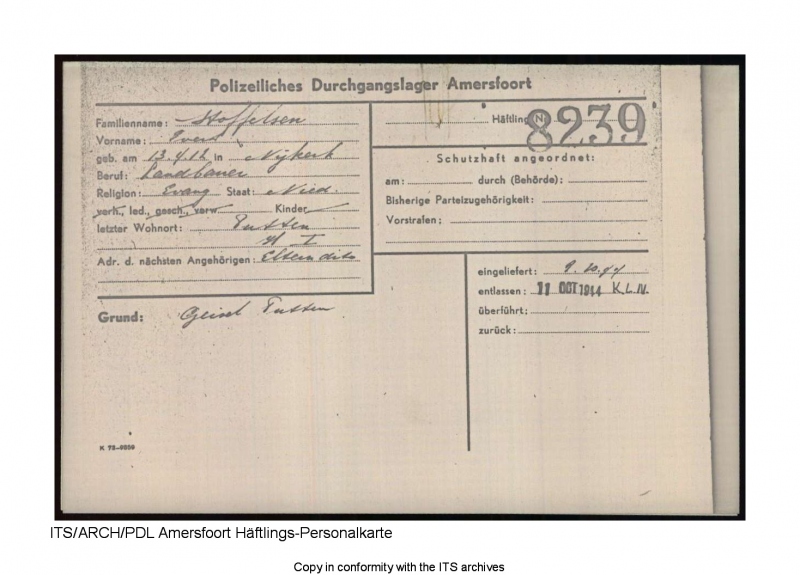 Polizeiliches Durchgangslager Amersfoort
Familienname: Stoffelsen
Vorname: Evert
geb. am 13.4.12 in Nijkerk
Beruf: Landbauer
Religion: Evang Staat: Nied.
verh., led., gesch., verw. Kinder
letzter Wohnort: Putten
H I
Adr. d. nächsten Angehörigen: Eltern dito
Häftling Nr. 8239
Schutzhaft angeordnet:
am: durch (Behörde):
Bisherige Parteizugehörigkeit:
Vorstrafen:
eingeliefert: 9.10.44
entlassen: 11 OCT 1944 K.L.N.
überführt:
zurück:
Grund: Geisel Putten
ITS/ARCH/PDL Amersfoort Häftlings-Personalkarte
Copy in conformity with the ITS archives